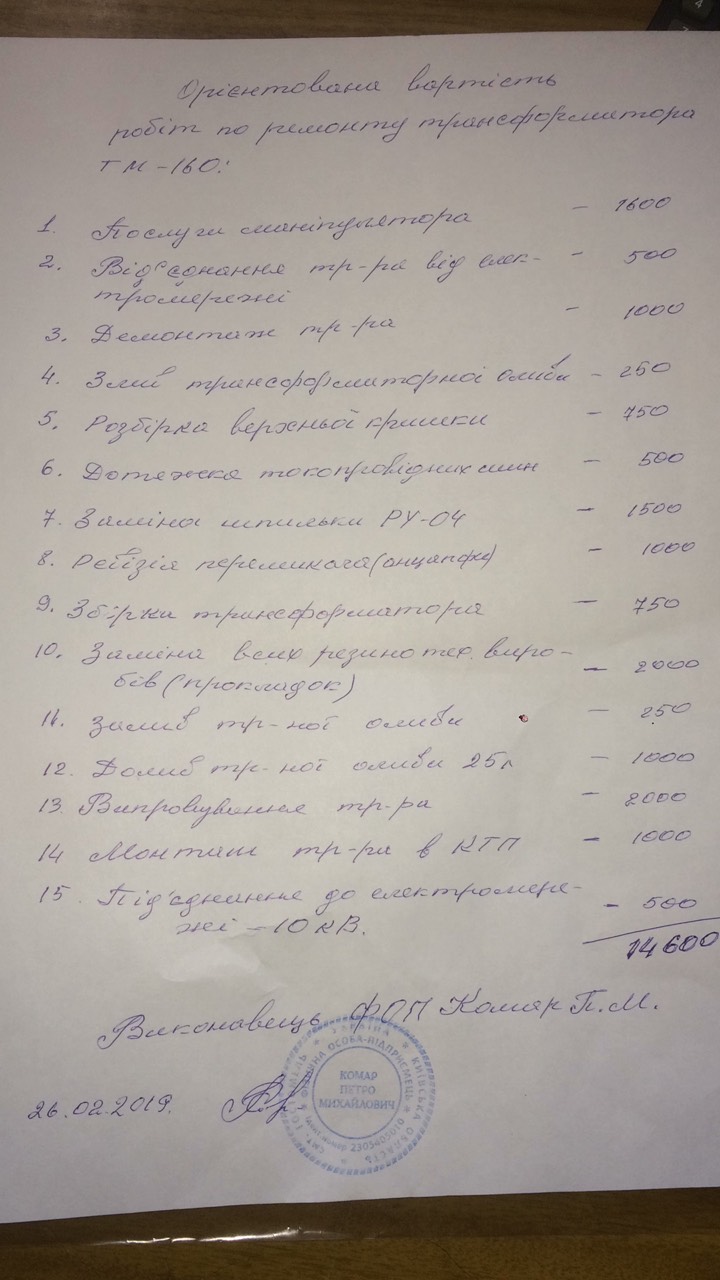 Орієнтована вартість
робіт по ремонту трансформатора
ТМ-160:
1. Послуги маніпулятора - 1600
2. Від'єднання тр-ра від елек- - 500
тромережі
3. Демонтаж тр-ра - 1000
4. Злив трансформаторної оливи - 250
5. Розбірка верхньої кришки - 750
6. Дотяжка токопровідних шин - 500
7. Заміна шпильки РУ-04 - 1500
8. Ревізія перемикача (анцапфи) - 1000
9. Збірка трансформатора - 750
10. Заміна всих резинотех. виро-
бів (прокладок) - 2000
11. Залив тр-ної оливи - 250
12. Долив тр-ної оливи 25л - 1000
13. Випробування тр-ра - 2000
14 Монтаж тр-ра в КТП - 1000
15. Під'єднання до електромере-
жі - 10 кВ. - 500
14600
Виконавець ФОП Комар П.М.
26.02.2019.
УКРАЇНА * КИЇВСЬКА ОБЛАСТЬ
ФІЗИЧНА ОСОБА-ПІДПРИЄМЕЦЬ
КОМАР
ПЕТРО
МИХАЙЛОВИЧ